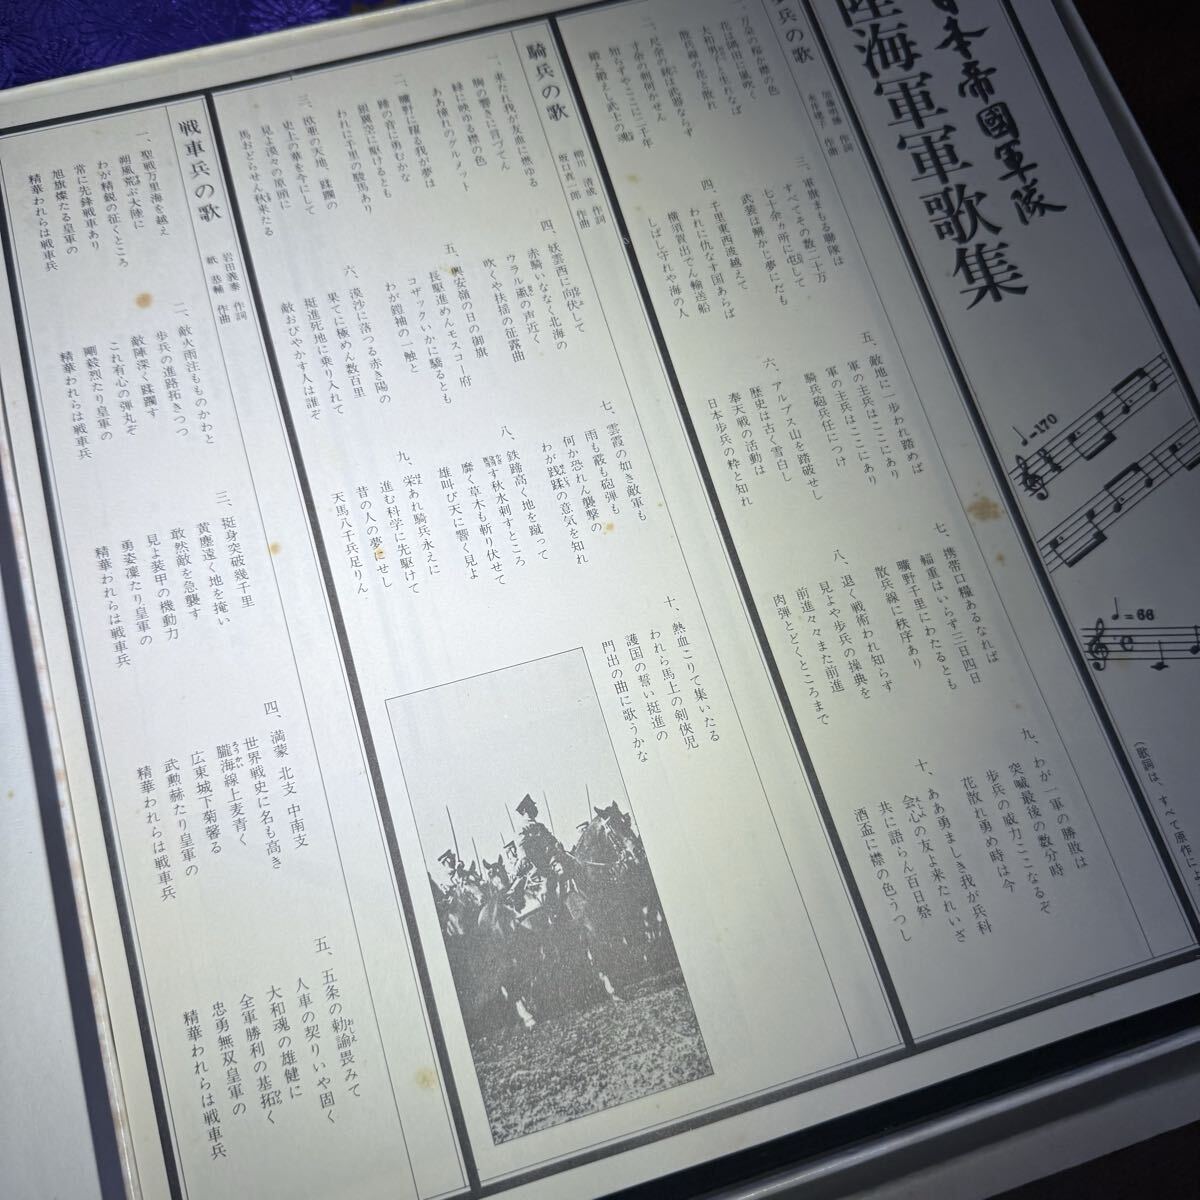 日本帝國軍隊
陸海軍軍歌集
♩=170
♩=66
(歌詞は、すべて原作によ
歩兵の歌
加藤明勝 作詞
永井建子 作曲
一、万朶の桜か襟の色
花は隅田に嵐吹く
大和男子と生れなば
散兵線の花と散れ
二、尺余の銃は武器ならず
寸余の剣何かせん
知らずやここに二千年
鍛え鍛えし武士の魂
三、軍旗まもる聯隊は
すべてその数二十万
七十余ヵ所に屯して
武装は解かじ夢にだも
四、千里東西波越えて
われに仇なす国あらば
横須賀出でん輸送船
しばし守れや海の人
五、敵地に一歩われ踏めば
軍の主兵はここにあり
軍の主兵はここにあり
騎兵砲兵任につけ
六、アルプス山を踏破せし
歴史は古く雪白し
奉天戦の活動は
日本歩兵の粋と知れ
七、携帯口糧あるなれば
輜重はいらず三日四日
曠野千里にわたるとも
散兵線に秩序あり
八、退く戦術われ知らず
見よや歩兵の操典を
前進々々また前進
肉弾とどくところまで
九、わが一軍の勝敗は
突喊最後の数分時
歩兵の威力ここなるぞ
花散れ勇め時は今
十、ああ勇ましき我が兵科
会心の友よ来たれいざ
共に語らん百日祭
酒盃に襟の色うつし
騎兵の歌
柳川 清成 作詞
坂口真一郎 作曲
一、来たれ我が友血に燃ゆる
胸の響きに肖づてん
緑に映ゆる襟の色
ああ憧れのグルメット
二、曠野に躍る我が夢は
蹄の音に勇むかな
銀翼空に駆けるとも
われに千里の駿馬あり
三、欧亜の天地、蹂躙の
史上の華を今にして
見よ漠々の原頭に
馬おどらせん秋来たる
四、妖雲西に向伏して
赤騎いななく北海の
ウラル颪の声近く
吹くや扶揺の征露曲
五、興安嶺の日の御旗
長駆進めんモスコー府
コザックいかに驕るとも
わが鎧袖の一触と
六、漠沙に落つる赤き陽の
果てに極めん数百里
挺進死地に乗り入れて
敵おびやかす人は誰ぞ
七、雲霞の如き敵軍も
雨も霰も砲弾も
何か恐れん襲撃の
わが践蹂の意気を知れ
八、鉄蹄高く地を蹴って
翳す秋水刺すところ
靡く草木も斬り伏せて
雄叫び天に響く見よ
九、栄あれ騎兵永えに
進む科学に先駆けて
昔の人の夢にせし
天馬八千兵足りん
十、熱血こりて集いたる
われら馬上の剣侠児
護国の誓い挺進の
門出の曲に歌うかな
戦車兵の歌
岩田義泰 作詞
紙 恭輔 作曲
一、聖戦万里海を越え
朔風荒ぶ大陸に
わが精鋭の征くところ
常に先鋒戦車あり
旭旗燦たる皇軍の
精華われらは戦車兵
二、敵火雨注もものかわと
歩兵の進路拓きつつ
敵陣深く蹂躙す
これ有心の弾丸ぞ
剛毅烈たり皇軍の
精華われらは戦車兵
三、挺身突破幾千里
黄塵遠く地を掩い
敢然敵を急襲す
見よ装甲の機動力
勇姿凜たり皇軍の
精華われらは戦車兵
四、満蒙 北支 中南支
世界戦史に名も高き
隴海線上麦青く
広東城下菊馨る
武勲赫たり皇軍の
精華われらは戦車兵
五、五条の勅諭畏みて
人車の契りいや固く
大和魂の雄健に
全軍勝利の基拓く
忠勇無双皇軍の
精華われらは戦車兵